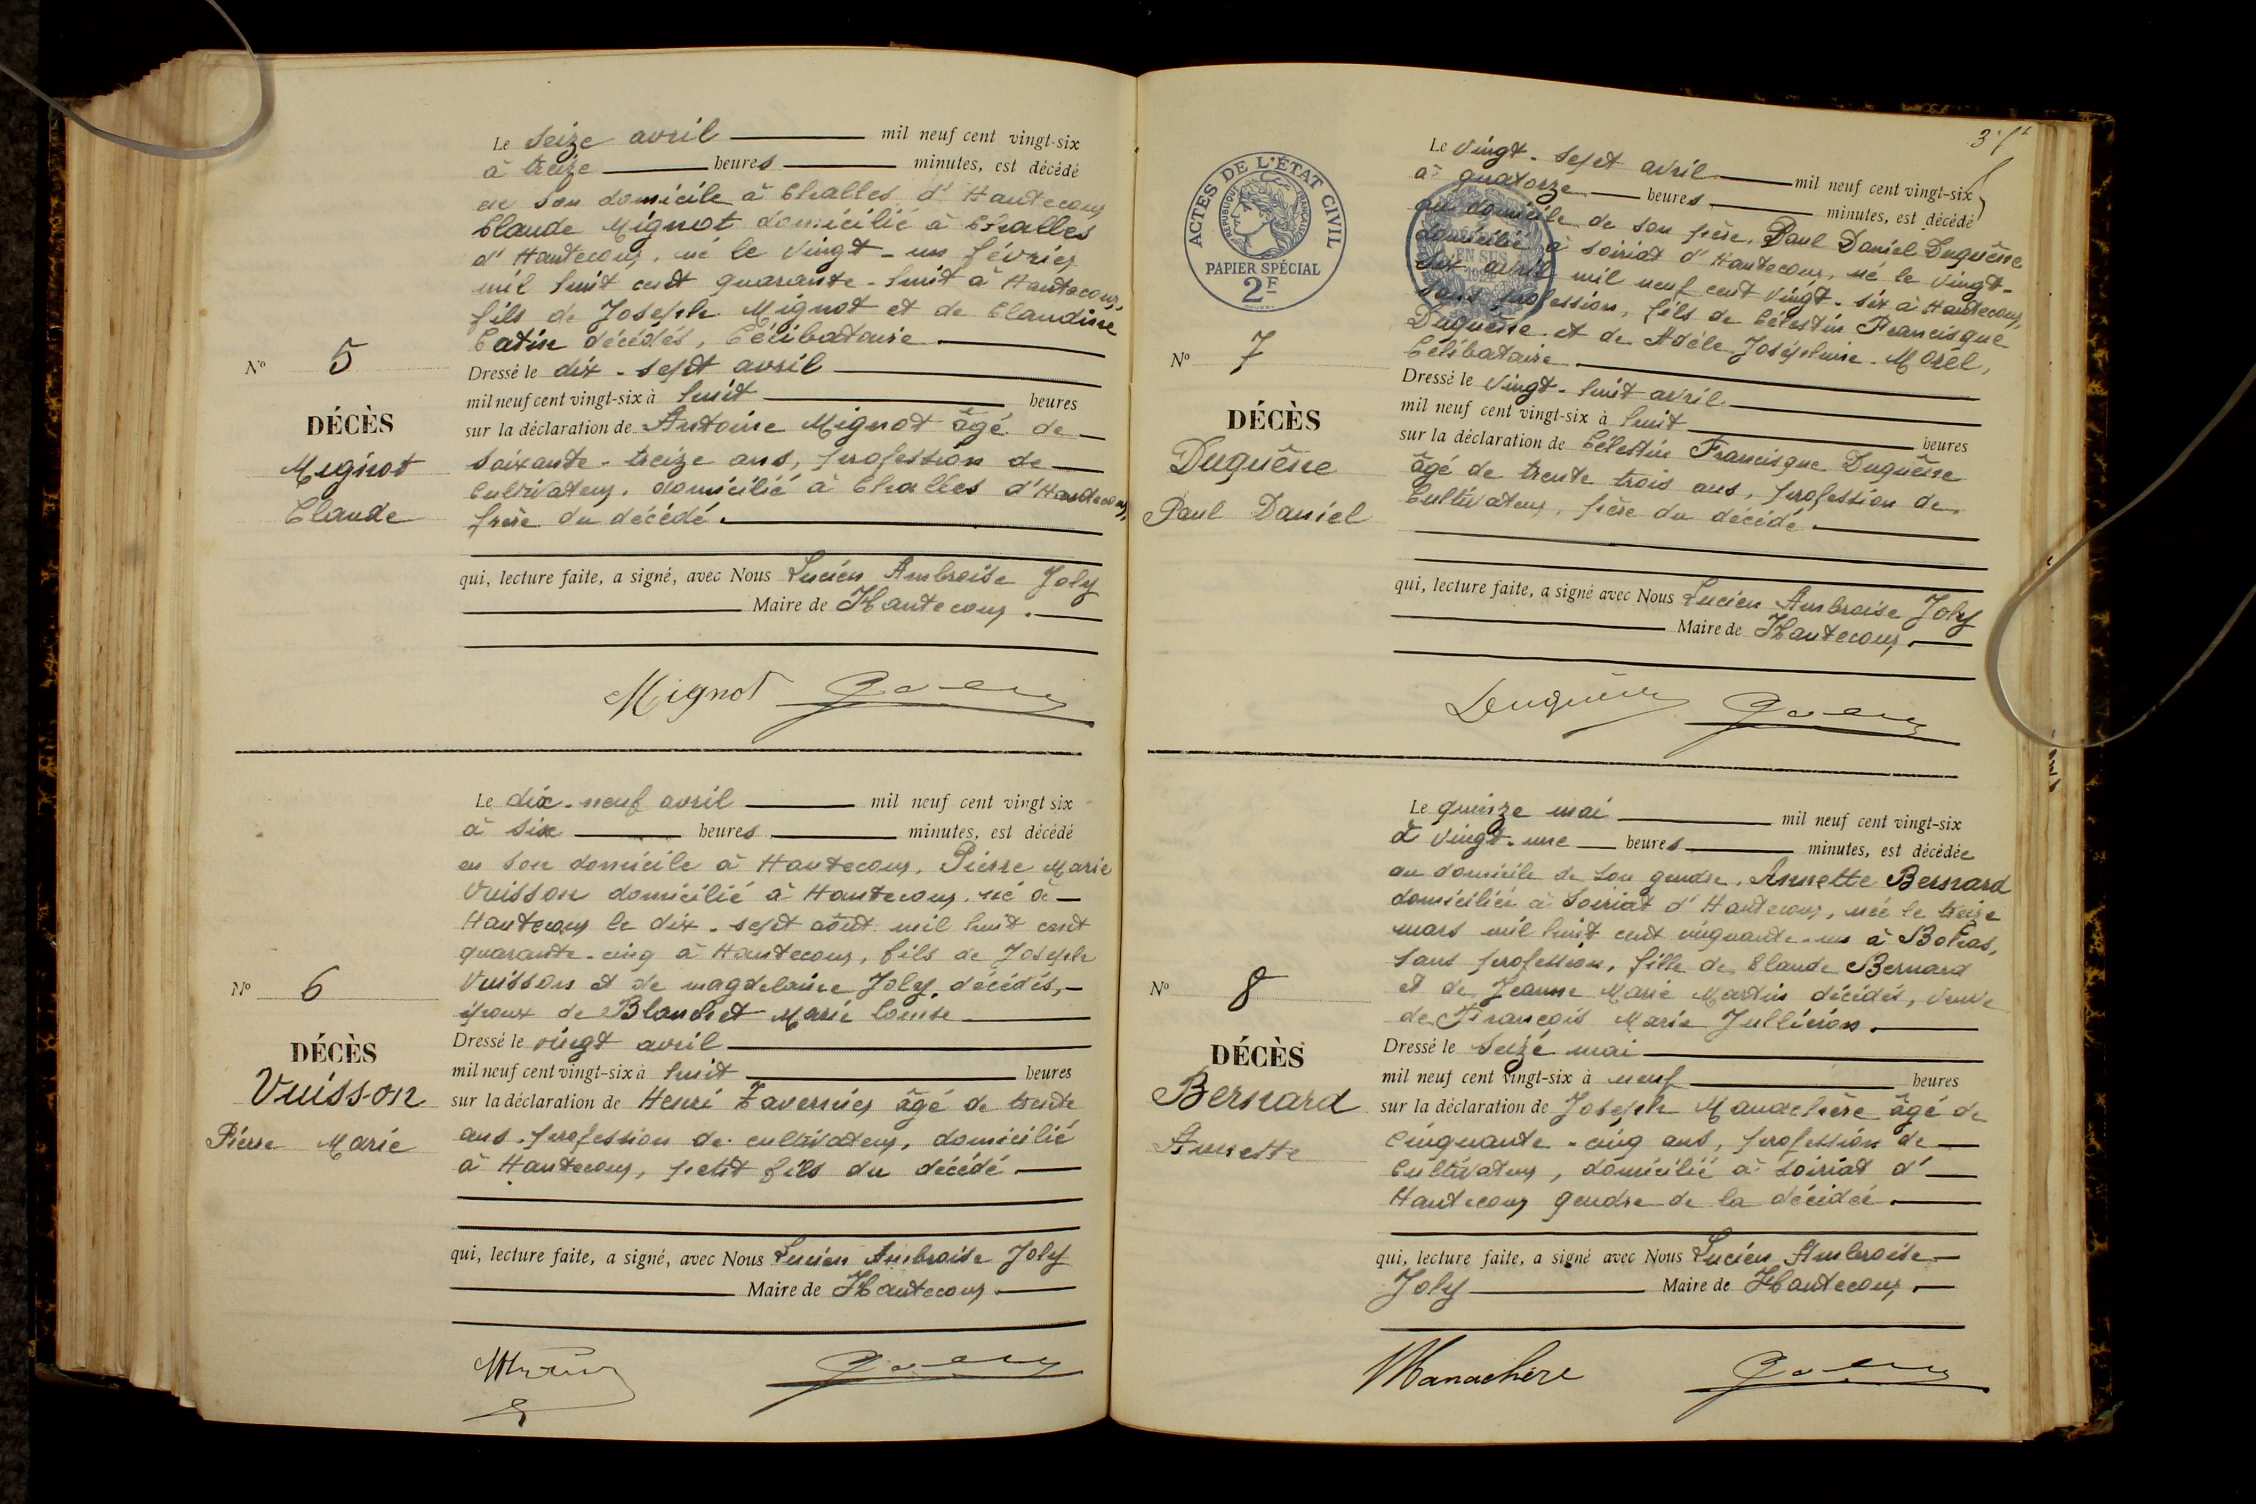 Le Seize avril mil neuf cent vingt-six
à treize heures minutes, est décédé
en son domicile à Challes d'Hautecour
Claude Mignot domicilié à Challes
d'Hautecour, né le vingt-un février
mil huit cent quarante-huit à Hautecour,
fils de Joseph Mignot et de Claudine
Catin décédés, Célibataire
Dressé le dix-sept avril
mil neuf cent vingt-six à huit heures
sur la déclaration de Antoine Mignot âgé de
soixante-treize ans, profession de
Cultivateur, domicilié à Challes d'Hautecour,
frère du décédé.
qui, lecture faite, a signé, avec Nous Lucien Ambroise Joly
Maire de Hautecour.
Nº 5
DÉCÈS
Mignot
Claude
Mignot
Le dix-neuf avril mil neuf cent vingt six
à six heures minutes, est décédé
en son domicile à Hautecour, Pierre Marie
Vuisson domicilié à Hautecour, né à
Hautecour le dix-sept août mil huit cent
quarante-cinq à Hautecour, fils de Joseph
Vuisson et de magdelaine Joly, décédés,
époux de Blanchet Marie Louise
Dressé le vingt avril
mil neuf cent vingt-six à huit heures
sur la déclaration de Henri Tavernier âgé de trente
ans, profession de cultivateur, domicilié
à Hautecour, petit fils du décédé
qui, lecture faite, a signé, avec Nous Lucien Ambroise Joly
Maire de Hautecour.
Nº 6
DÉCÈS
Vuisson
Pierre Marie
ACTES DE L'ÉTAT CIVIL
RÉPUBLIQUE FRANÇAISE
PAPIER SPÉCIAL
2F
EN SUS
Le Vingt-sept avril mil neuf cent vingt-six
à quatorze heures minutes, est décédé
au domicile de son père, Paul Daniel Duquêne
domicilié à Soiriat d'Hautecour, né le vingt-
six avril mil neuf cent vingt-six à Hautecour,
sans profession, fils de Célestin Francisque
Duquêne et de Adèle Joséphine Morel,
Célibataire
Dressé le vingt-huit avril
mil neuf cent vingt-six à huit heures
sur la déclaration de Célestin Francisque Duquêne
âgé de trente trois ans, profession de
Cultivateur, père du décédé
qui, lecture faite, a signé avec Nous Lucien Ambroise Joly
Maire de Hautecour.
Nº 7
DÉCÈS
Duquêne
Paul Daniel
Le quinze mai mil neuf cent vingt-six
à vingt-une heures minutes, est décédée
au domicile de son gendre, Annette Bernard
domiciliée à Soiriat d'Hautecour, née le treize
mars mil huit cent cinquante-un à Bohas,
sans profession, fille de Claude Bernard
et de Jeanne Marie Martin décédés, veuve
de François Marie Jullieron.
Dressé le Seize mai
mil neuf cent vingt-six à neuf heures
sur la déclaration de Joseph Manachère âgé de
Cinquante-cinq ans, profession de
Cultivateur, domicilié à Soiriat d'
Hautecour gendre de la décédée.
qui, lecture faite, a signé avec Nous Lucien Ambroise
Joly Maire de Hautecour.
Nº 8
DÉCÈS
Bernard
Annette
Manachère